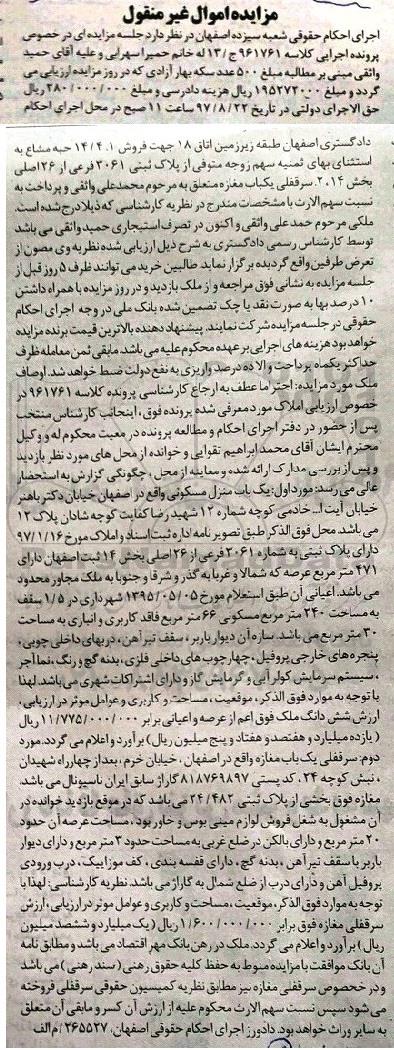 مزایده اموال غیر منقول
اجرای احکام حقوقی شعبه سیزده اصفهان در نظر دارد جلسه مزایده ای در خصوص
پرونده اجرایی کلاسه ۹۶۱۷۶۱ ج/۱۳ له خانم حمیرا سهرابی و علیه آقای حمید
واثقی مبنی بر مطالبه مبلغ ۵۰۰ عدد سکه بهار آزادی که در روز مزایده ارزیابی می
گردد و مبلغ ۱۹۵۲۷۳۰۰۰ ریال هزینه دادرسی و مبلغ ۲۸۰/۰۰۰/۰۰۰ ریال
حق الاجرای دولتی در تاریخ ۹۷/۸/۲۲ ساعت ۱۱ صبح در محل اجرای احکام
دادگستری اصفهان طبقه زیرزمین اتاق ۱۸ جهت فروش ۱. ۱۴/۴ حبه مشاع به
استثنای بهای ثمنیه سهم زوجه متوفی از پلاک ثبتی ۳۰۶۱ فرعی از ۲۶ اصلی
بخش ۱۴، ۲. سرقفلی یکباب مغازه متعلق به مرحوم محمدعلی واثقی و پرداخت به
نسبت سهم الارث با مشخصات مندرج در نظریه کارشناسی که ذیلا درج شده است.
ملکی مرحوم حمدعلی واثقی و اکنون در تصرف استیجاری حمید واثقی می باشد
توسط کارشناس رسمی دادگستری به شرح ذیل ارزیابی شده نظریه وی مصون از
تعرض طرفین واقع گردیده برگزار نماید. طالبین خرید می توانند ظرف ۵ روز قبل از
جلسه مزایده به نشانی فوق مراجعه و از ملک بازدید و در روز مزایده با همراه داشتن
۱۰ درصد بها به صورت نقد یا چک تضمین شده بانک ملی در وجه اجرای احکام
حقوقی در جلسه مزایده شرکت نمایند. پیشنهاد دهنده بالاترین قیمت برنده مزایده
خواهد بود هزینه های اجرایی بر عهده محکوم علیه می باشد مابقی ثمن معامله ظرف
حداکثر یکماه پرداخت والا ده درصد واریزی به نفع دولت ضبط خواهد شد. اوصاف
ملک مورد مزایده: احتراما عطف به ارجاع کارشناسی پرونده کلاسه ۹۶۱۷۶۱ در
خصوص ارزیابی املاک مورد معرفی شده پرونده فوق، اینجانب کارشناس منتخب
پس از حضور در دفتر اجرای احکام و مطالعه پرونده در معیت محکوم له و وکیل
محترم ایشان آقای محمد ابراهیم تقوایی و خوانده از محل های مورد نظر بازدید
و پس از بررسی مدارک ارائه شده و معاینه از محل، چگونگی گزارش به استحضار
عالی می رسد: مورد اول: یک باب منزل مسکونی واقع در اصفهان خیابان دکتر باهنر
خیابان آیت ا... خادمی کوچه شماره ۱۲ شهید رضا کفایت کوچه شادان پلاک ۱۲
می باشد. محل فوق الذکر طبق تصویر نامه اداره ثبت اسناد و املاک مورخ ۹۷/۱/۱۶
دارای پلاک ثبتی به شماره ۳۰۶۱ فرعی از ۲۶ اصلی بخش ۱۴ ثبت اصفهان دارای
۴۷۱ متر مربع عرصه که شمالا و غربا به گذر و شرقا و جنوبا به ملک مجاور محدود
می باشد. اعیانی آن طبق استعلام مورخ ۱۳۹۵/۰۵/۰۵ شهرداری در ۱/۵ سقف
به مساحت ۲۴۰ متر مربع مسکونی ۶۶ متر مربع فاقد کاربری و انباری به مساحت
۳۰ متر مربع می باشد. سازه آن دیوار باربر، سقف تیرآهن، دربهای داخلی چوبی،
پنجره های خارجی پروفیل، چهارچوب های داخلی فلزی، بدنه گچ و رنگ، نما آجر
، سیستم سرمایش کولر آبی و گرمایش گاز و دارای اشتراکات شهری می باشد. لهذا
با توجه به موارد فوق الذکر، موقعیت، مساحت و کاربری و عوامل موثر در ارزیابی،
ارزش شش دانگ ملک فوق اعم از عرصه و اعیانی برابر ۱۱/۷۷۵/۰۰۰/۰۰۰ ریال
(یازده میلیارد و هفتصد و هفتاد و پنج میلیون ریال) برآورد و اعلام می گردد. مورد
دوم: سرقفلی یک باب مغازه واقع در اصفهان، خیابان خرم، بعد از چهارراه شهیدان
، نبش کوچه ۲۴، کد پستی ۸۱۸۷۶۹۸۹۷ گاراژ سابق ایران ناسیونال می باشد.
مغازه فوق بخشی از پلاک ثبتی ۲۴/۴۸۲ می باشد که در موقع بازدید خوانده در
آن مشغول به شغل فروش لوازم مینی بوس و خاور بود، مساحت عرصه آن حدود
۲۰ متر مربع و دارای بالکن در ضلع غربی به مساحت حدود ۳ متر مربع و دارای دیوار
باربر با سقف تیرآهن، بدنه گچ، دارای قفسه بندی، کف موزاییک، درب ورودی
پروفیل آهن و دارای درب از ضلع شمال به گاراژ می باشد. نظریه کارشناسی: لهذا با
توجه به موارد فوق الذکر، موقعیت، مساحت و کاربری و عوامل موثر در ارزیابی، ارزش
سرقفلی مغازه فوق برابر ۱/۶۰۰/۰۰۰/۰۰۰ ریال (یک میلیارد و ششصد میلیون
ریال) برآورد و اعلام می گردد. ملک در رهن بانک مهر اقتصاد می باشد و مطابق نامه
آن بانک موافقت با مزایده منوط به حفظ کلیه حقوق رهنی (سند رهنی) می باشد
و در خصوص سرقفلی مغازه نیز مطابق نظریه کمیسیون حقوقی سرقفلی فروخته
می شود سپس نسبت سهم الارث محکوم علیه از ارزش آن کسر و مابقی آن متعلق
به سایر وراث خواهد بود. دادورز اجرای احکام حقوقی اصفهان، ۲۶۵۵۲۷ / م الف